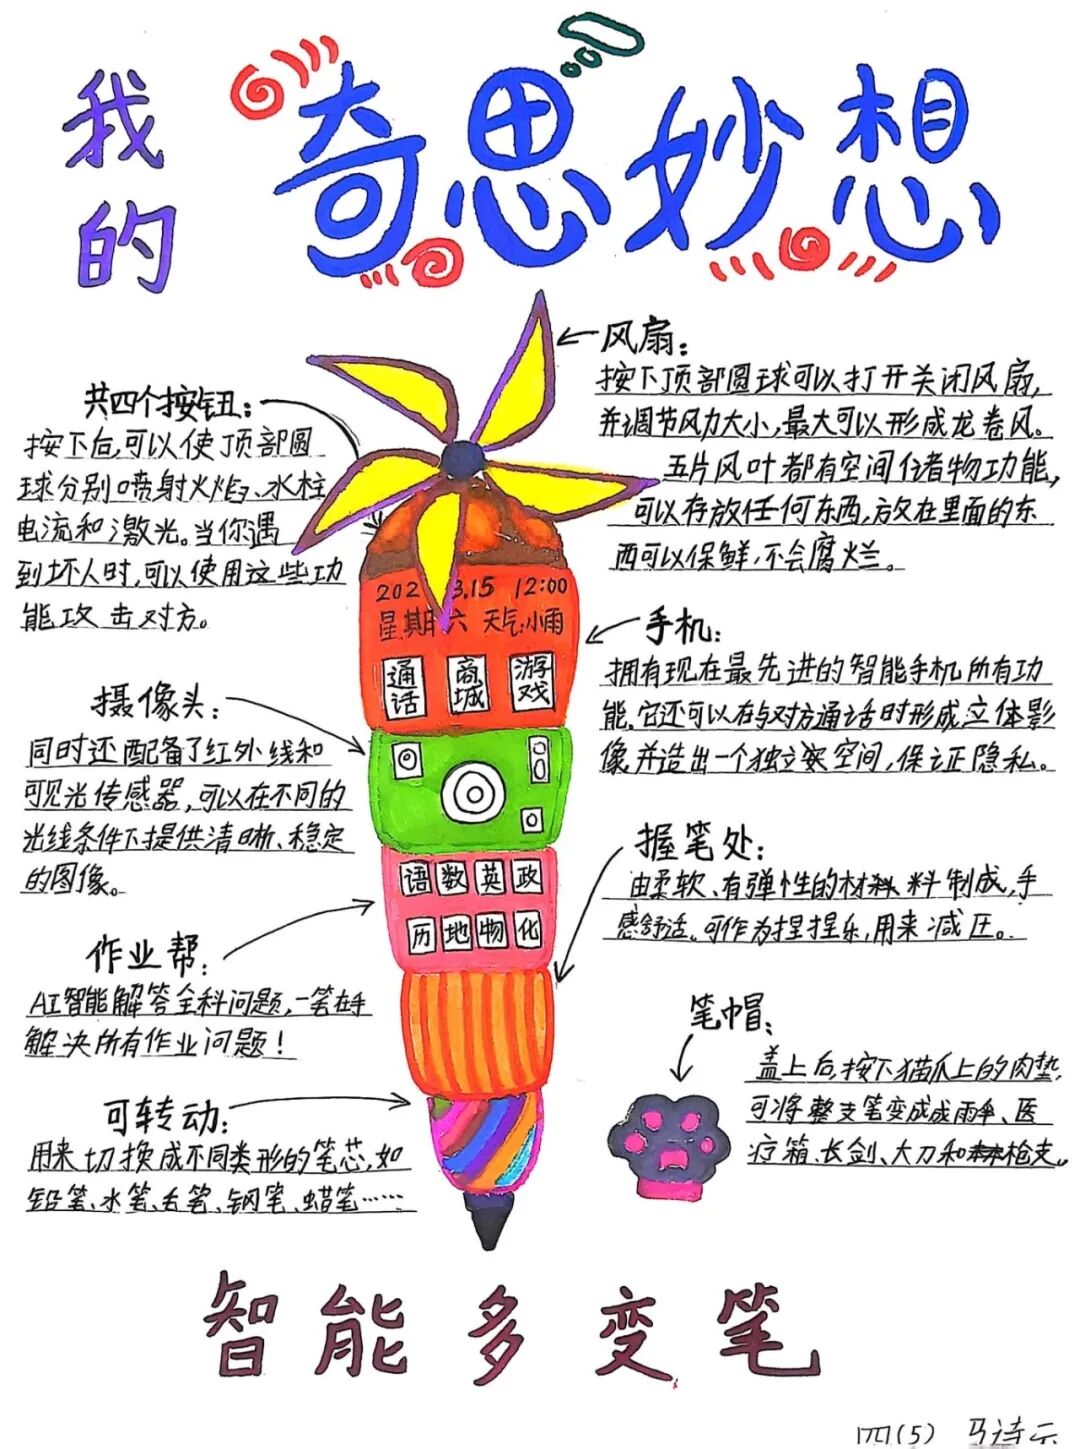 我的
奇思妙想
风扇：
按下顶部圆球可以打开关闭风扇，
并调节风力大小，最大可以形成龙卷风。
五片风叶都有空间储物功能，
可以存放任何东西，放在里面的东
西可以保鲜，不会腐烂。
共四个按钮：
按下后，可以使顶部圆
球分别喷射火焰、水柱
电流和激光。当你遇
到坏人时，可以使用这些功
能攻击对方。
202 3.15 12:00
星期六 天气：小雨
通话
商城
游戏
手机：
拥有现在最先进的智能手机所有功
能。它还可以在与对方通话时形成立体影
像，并造出一个独立空间，保证隐私。
摄像头：
同时还配备了红外线和
可见光传感器，可以在不同的
光线条件下提供清晰、稳定
的图像。
握笔处：
由柔软、有弹性的材料制成，手
感舒适。可作为捏捏乐，用来减压。
语 数 英 政
历 地 物 化
作业帮：
AI智能解答全科问题，一笔在手
解决所有作业问题！
笔帽：
盖上后，按下猫爪上的肉垫，
可将整支笔变成成雨伞、医
疗箱、长剑、大刀和枪支。
可转动：
用来切换成不同类形的笔芯，如
铅笔、水笔、毛笔、钢笔、蜡笔……
智能多变笔
四(5) 马诗云